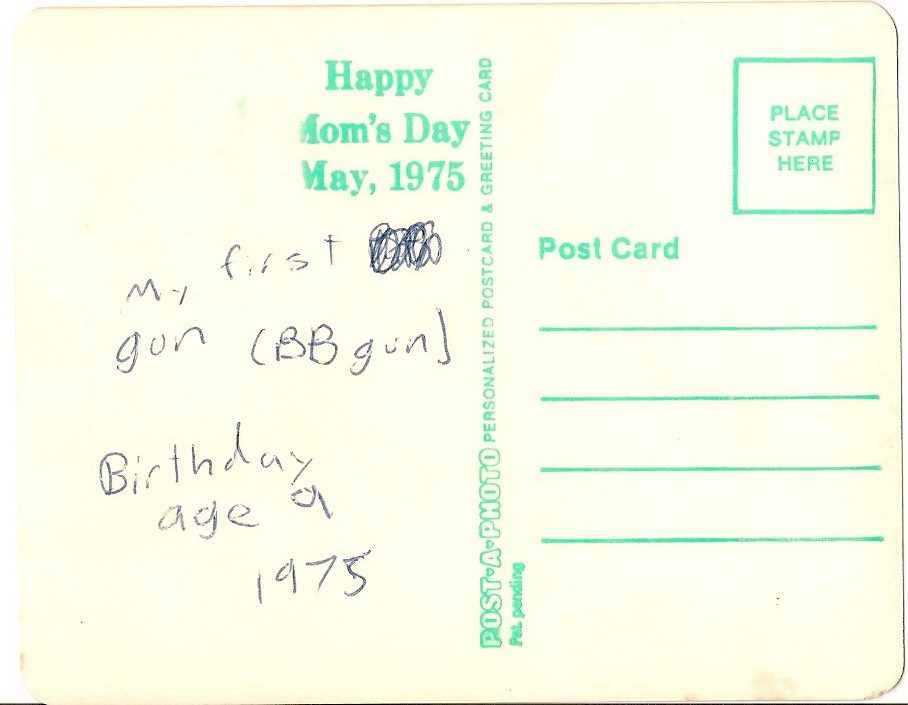 Happy
Mom's Day
May, 1975
My first
gun (BB gun]
Birthday
age 9
1975
POST·A·PHOTO PERSONALIZED POSTCARD & GREETING CARD
Pat. pending
PLACE
STAMP
HERE
Post Card